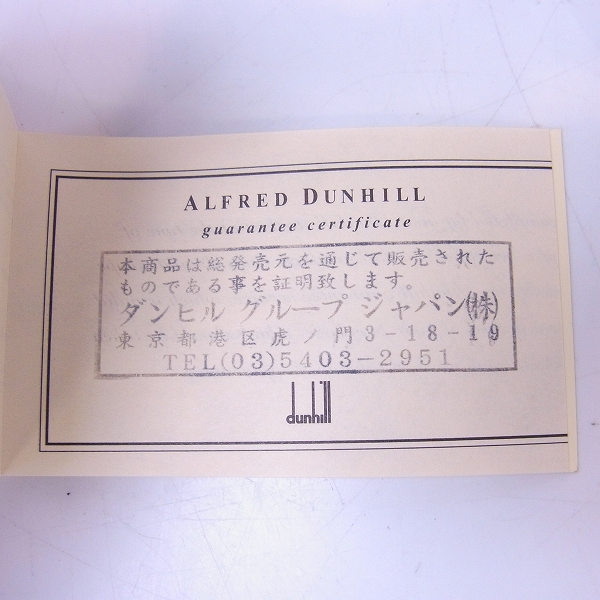 ALFRED DUNHILL
guarantee certificate
本商品は総発売元を通じて販売された
ものである事を証明致します。
ダンヒル グループ ジャパン(株)
東京都港区虎ノ門3-18-19
TEL(03)5403-2951
dunhill